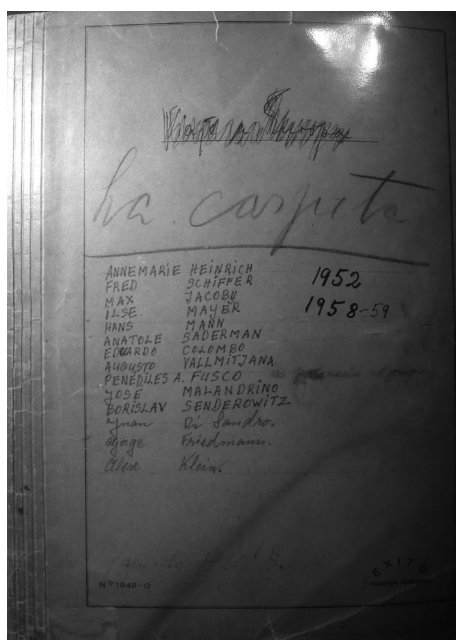 La carpeta
ANNEMARIE HEINRICH 1952
FRED SCHIFFER
MAX JACOBY 1958-59
ILSE MAYER
HANS MANN
ANATOLE SADERMAN
EDUARDO COLOMBO
AUGUSTO VALLMITJANA
PENEDILES A. FUSCO no
JOSE MALANDRINO
BORISLAV SENDEROWITZ
Juan Di Sandro.
Jorge Friedmann.
Alex Klein.
N.º 1940-O
EXITO